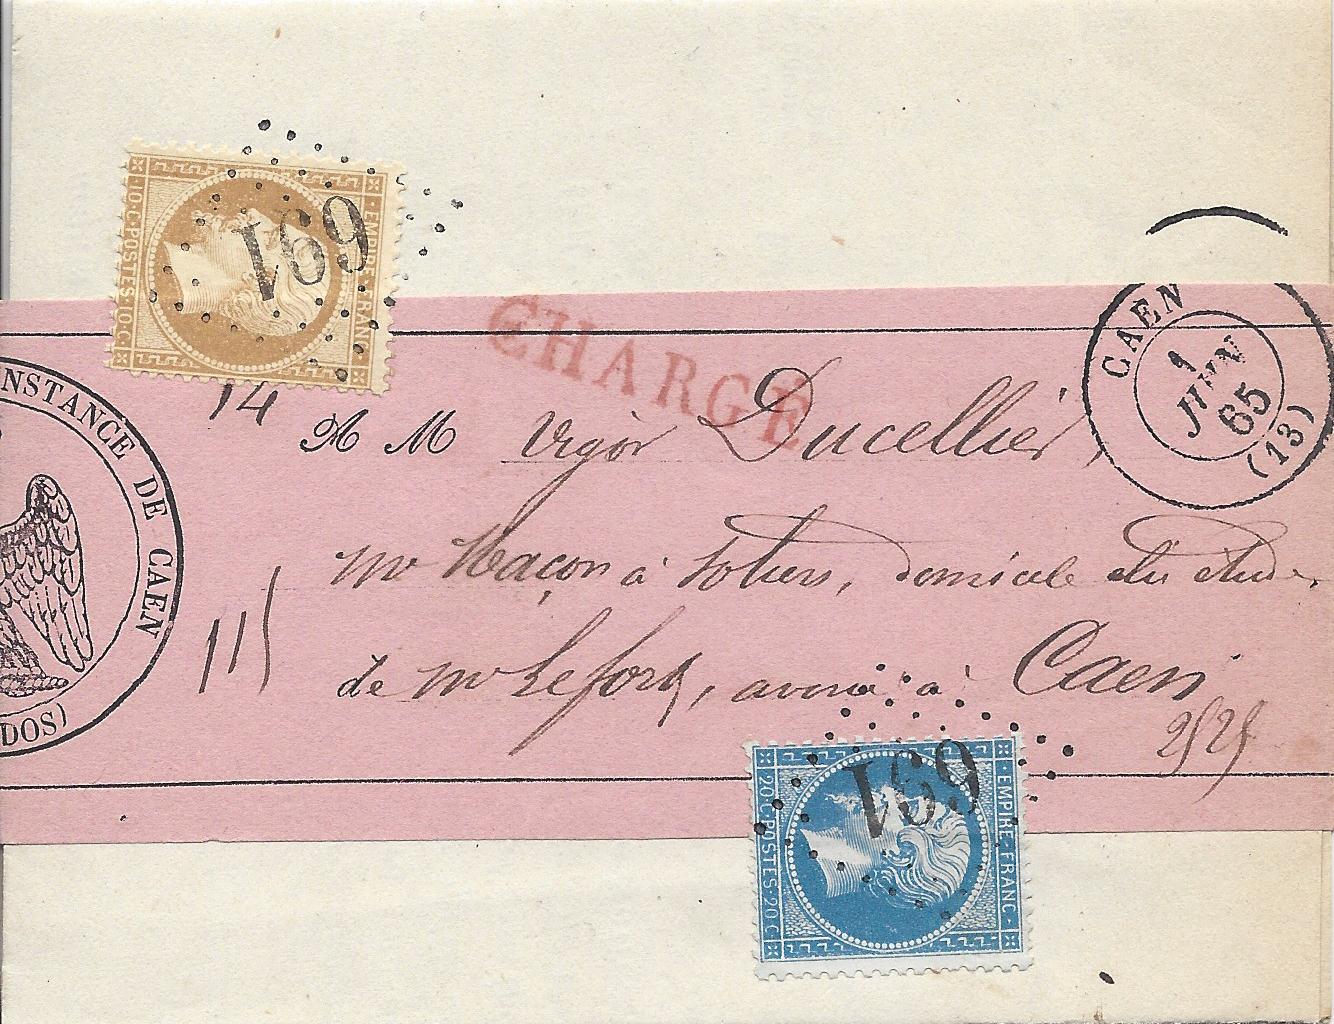 EMPIRE · FRANC ·
10 · C · POSTES · 10 · C
691
CHARGÉ
CAEN
1
JUIN
65
(13)
NSTANCE DE CAEN
DOS)
14
A M Vigor Ducellier,
Mr Maçon à Soliers, domicile élu étude
115
de Mr Lefort, avoué à Caen
EMPIRE · FRANC ·
20 · C · POSTES · 20 · C
691